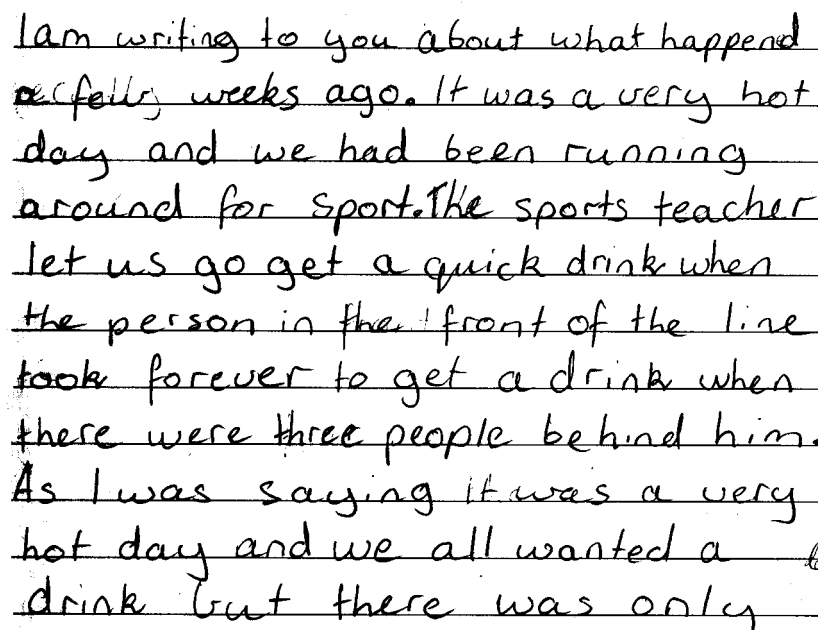 I am writing to you about what happend
weeks ago. It was a very hot
day and we had been running
around for sport. The sports teacher
let us go get a quick drink when
the person in the front of the line
took forever to get a drink when
there were three people behind him.
As I was saying it was a very
hot day and we all wanted a
drink but there was only